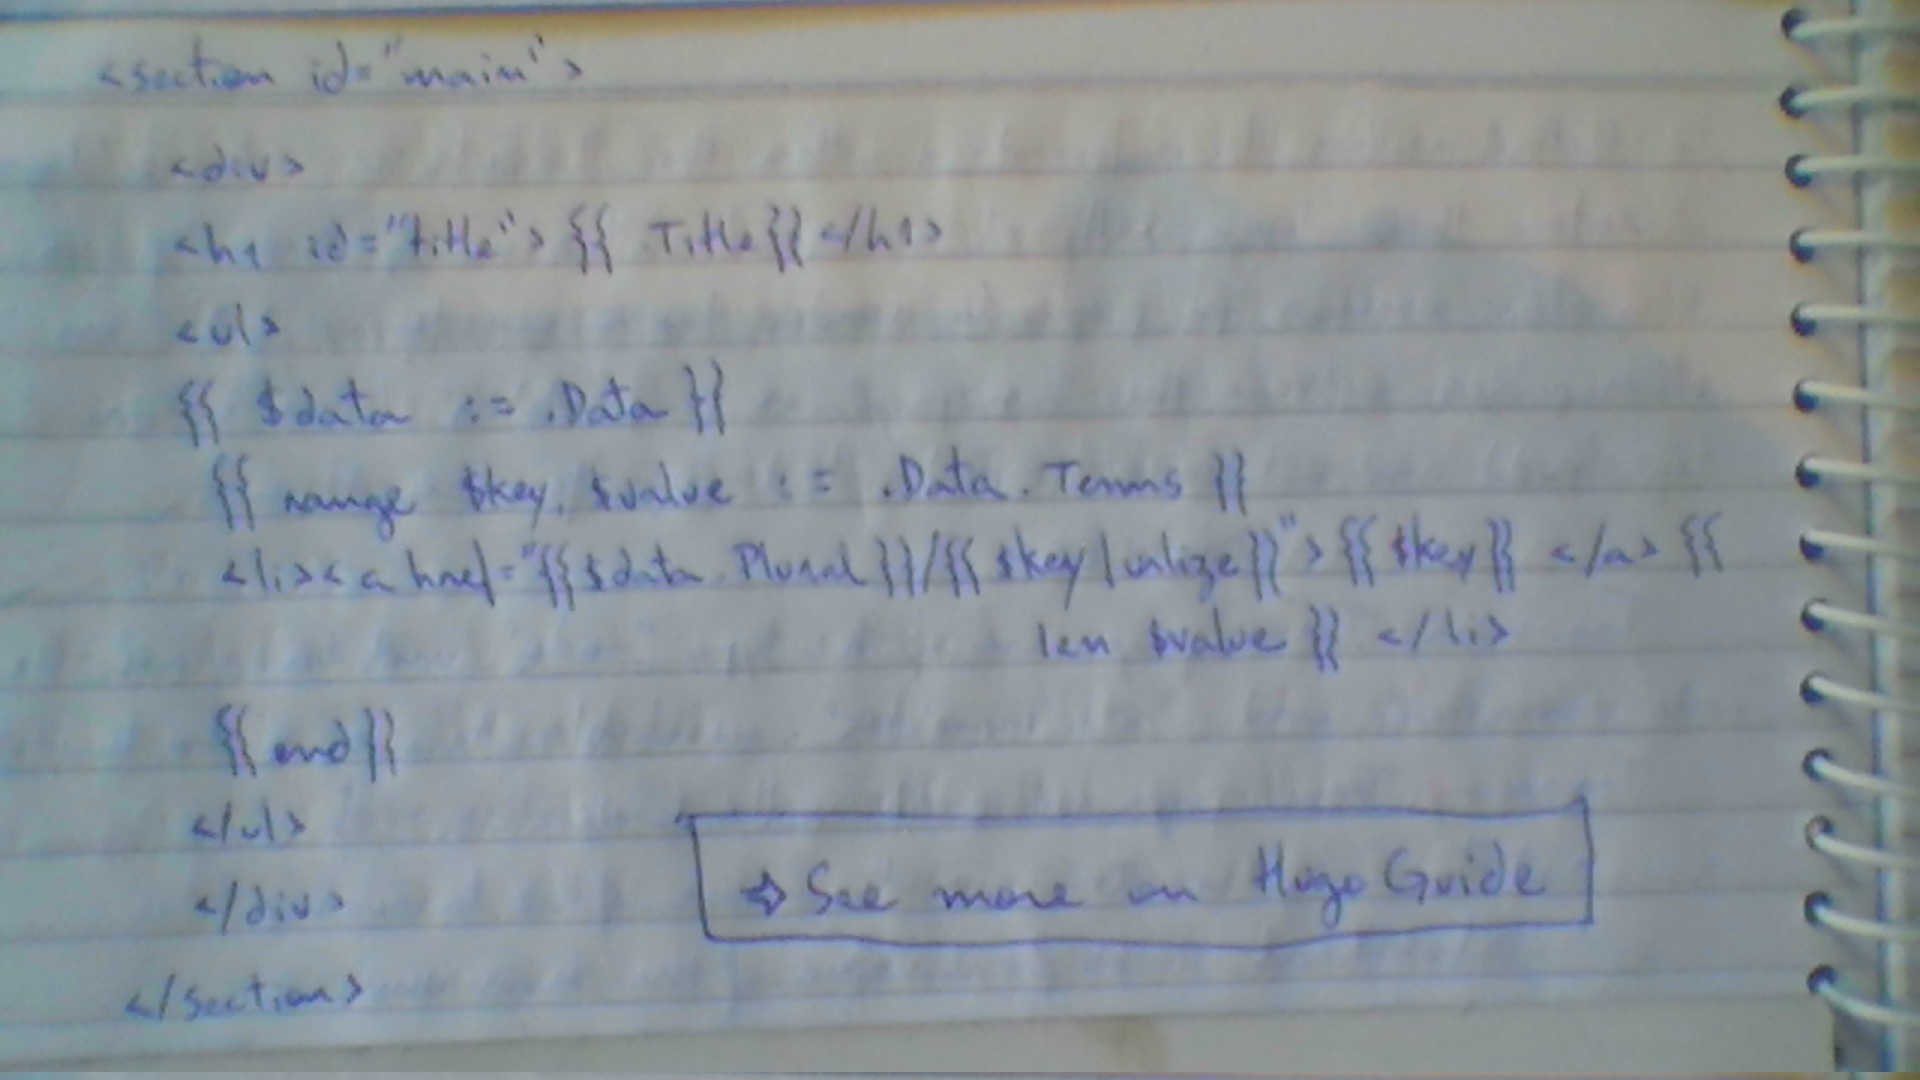 <section id="main">
<div>
<h1 id="title"> {{ .Title}} </h1>
<ul>
{{ $data := .Data }}
{{ range $key, $value := .Data.Terms }}
<li><a href="{{$data.Plural}}/{{ $key | urlize}}"> {{ $key}} </a> {{
len $value }} </li>
{{ end }}
</ul>
</div>
</section>
See more on Hugo Guide